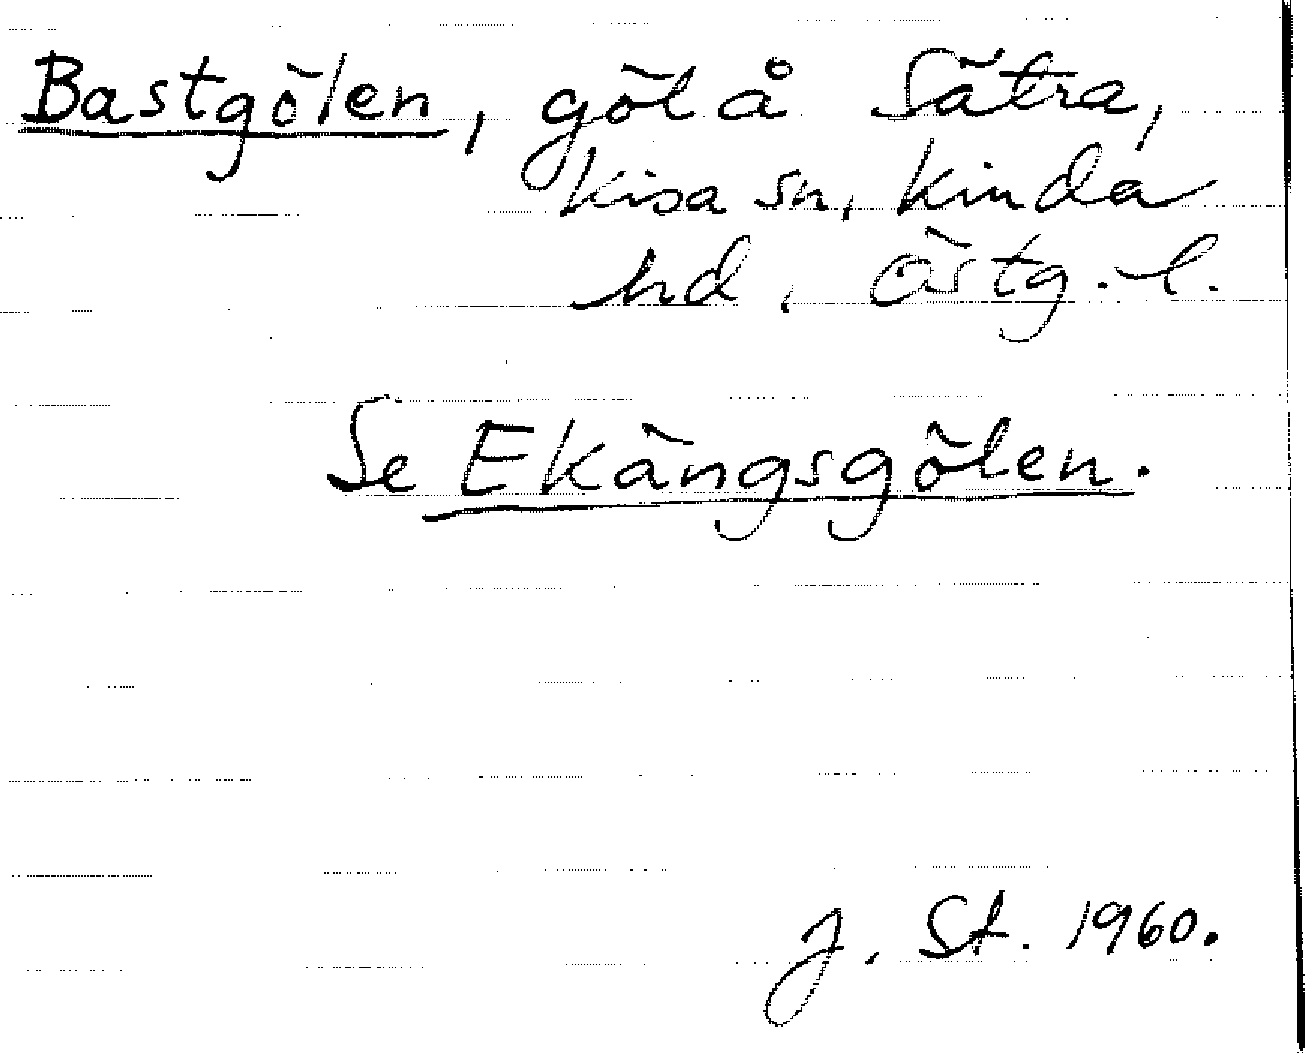 Bastgölen, göl å Sätra,
Kisa sn, Kinda
hd, Östg. l.
Se Ekängsgölen.
J. St. 1960.